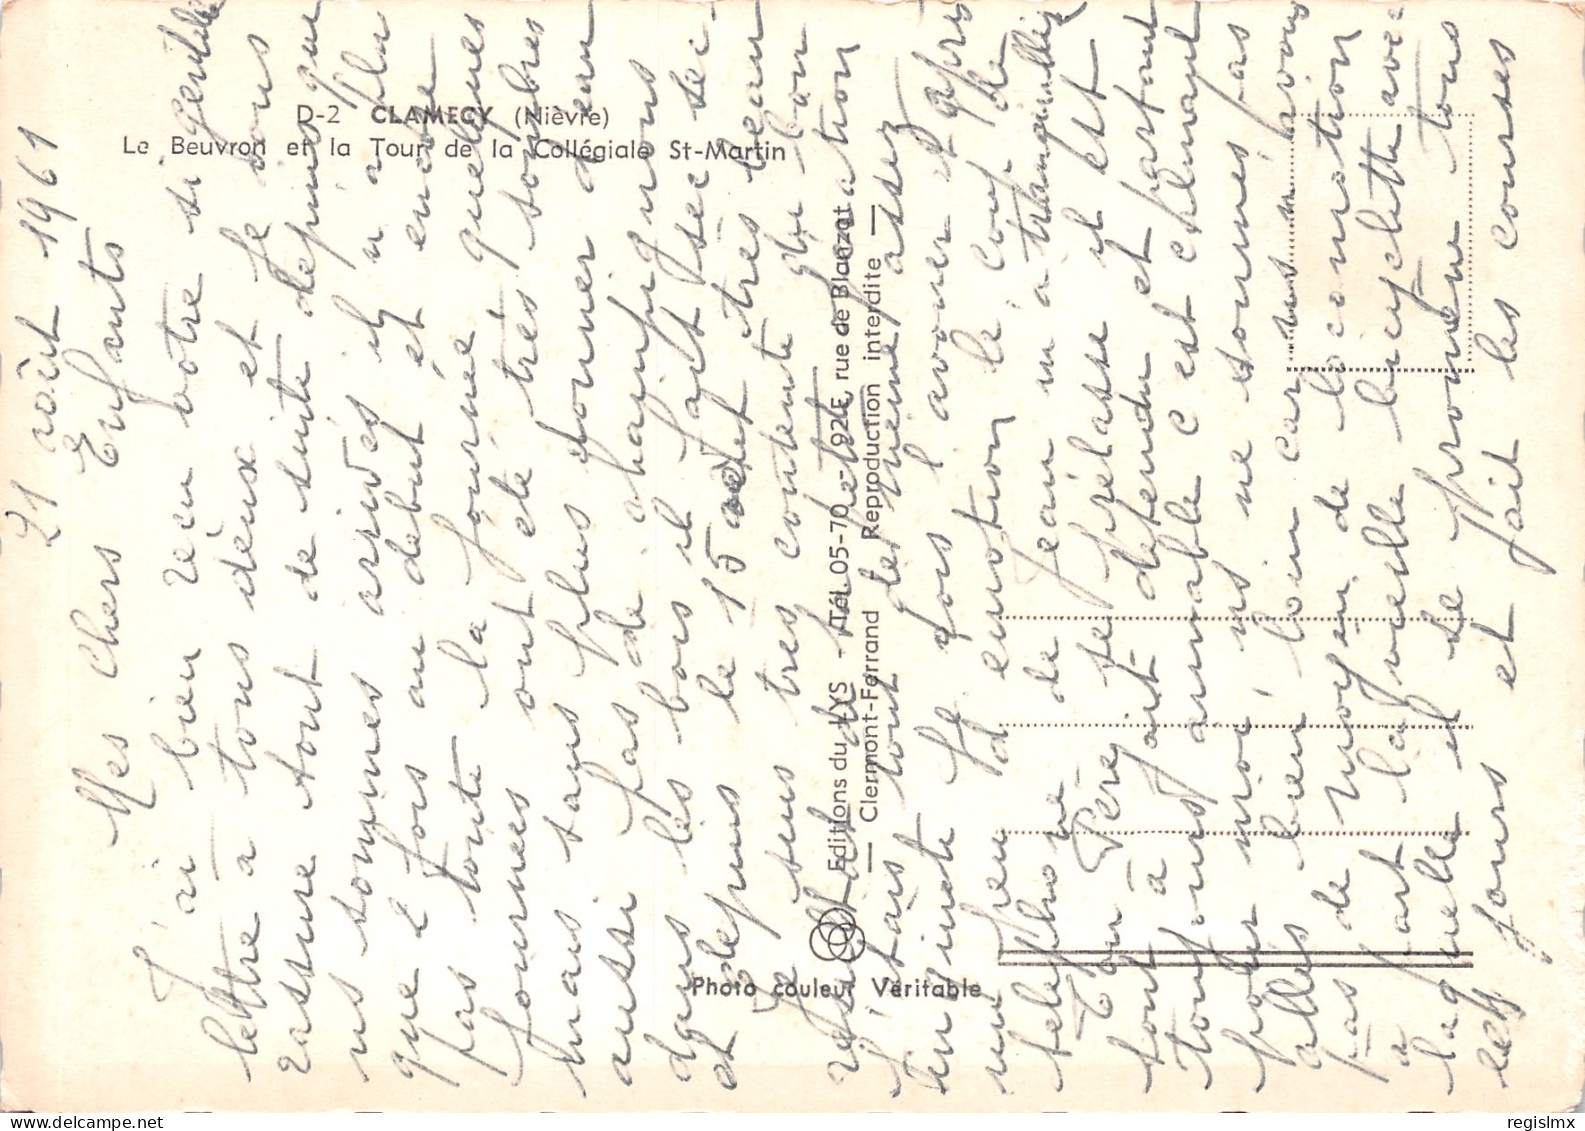 D-2 CLAMECY (Nièvre)
Le Beuvron et la Tour de la Collégiale St-Martin
Editions du LYS - Tél. 05-70 - 92E, rue de Blanzat
— Clermont-Ferrand Reproduction interdite —
Photo couleur Véritable
21 août 1961
Mes chers Enfants
J'ai bien reçu votre si gentille
lettre à tous deux et je vous
rassure tout de suite depuis que
ns sommes arrivés il n a plu
que 2 fois au debut et encore
pas toute la journée quelques
journées ont été très sombres
mais sans plus donner d eau
aussi pas de champignons
dans les bois il fait sec
et depuis le 15 août très beau
Je suis très contente du bon
résultat de
J'étais tout de même assez
inquiète Je vous l avouer et après
une peu d emotion le coup de
telephone de Jean m a tranquillisé
Ton Père se prélasse il est
tout à fait detendu et partant
toujours aimable c est calmant
pour moi, ns ne sommes pas
allés bien loin car ns n avons
pas de moyen de locomotion
a part la vieille bicyclette avec
laquelle il se promène tous
les jours et fait les courses
regislmx